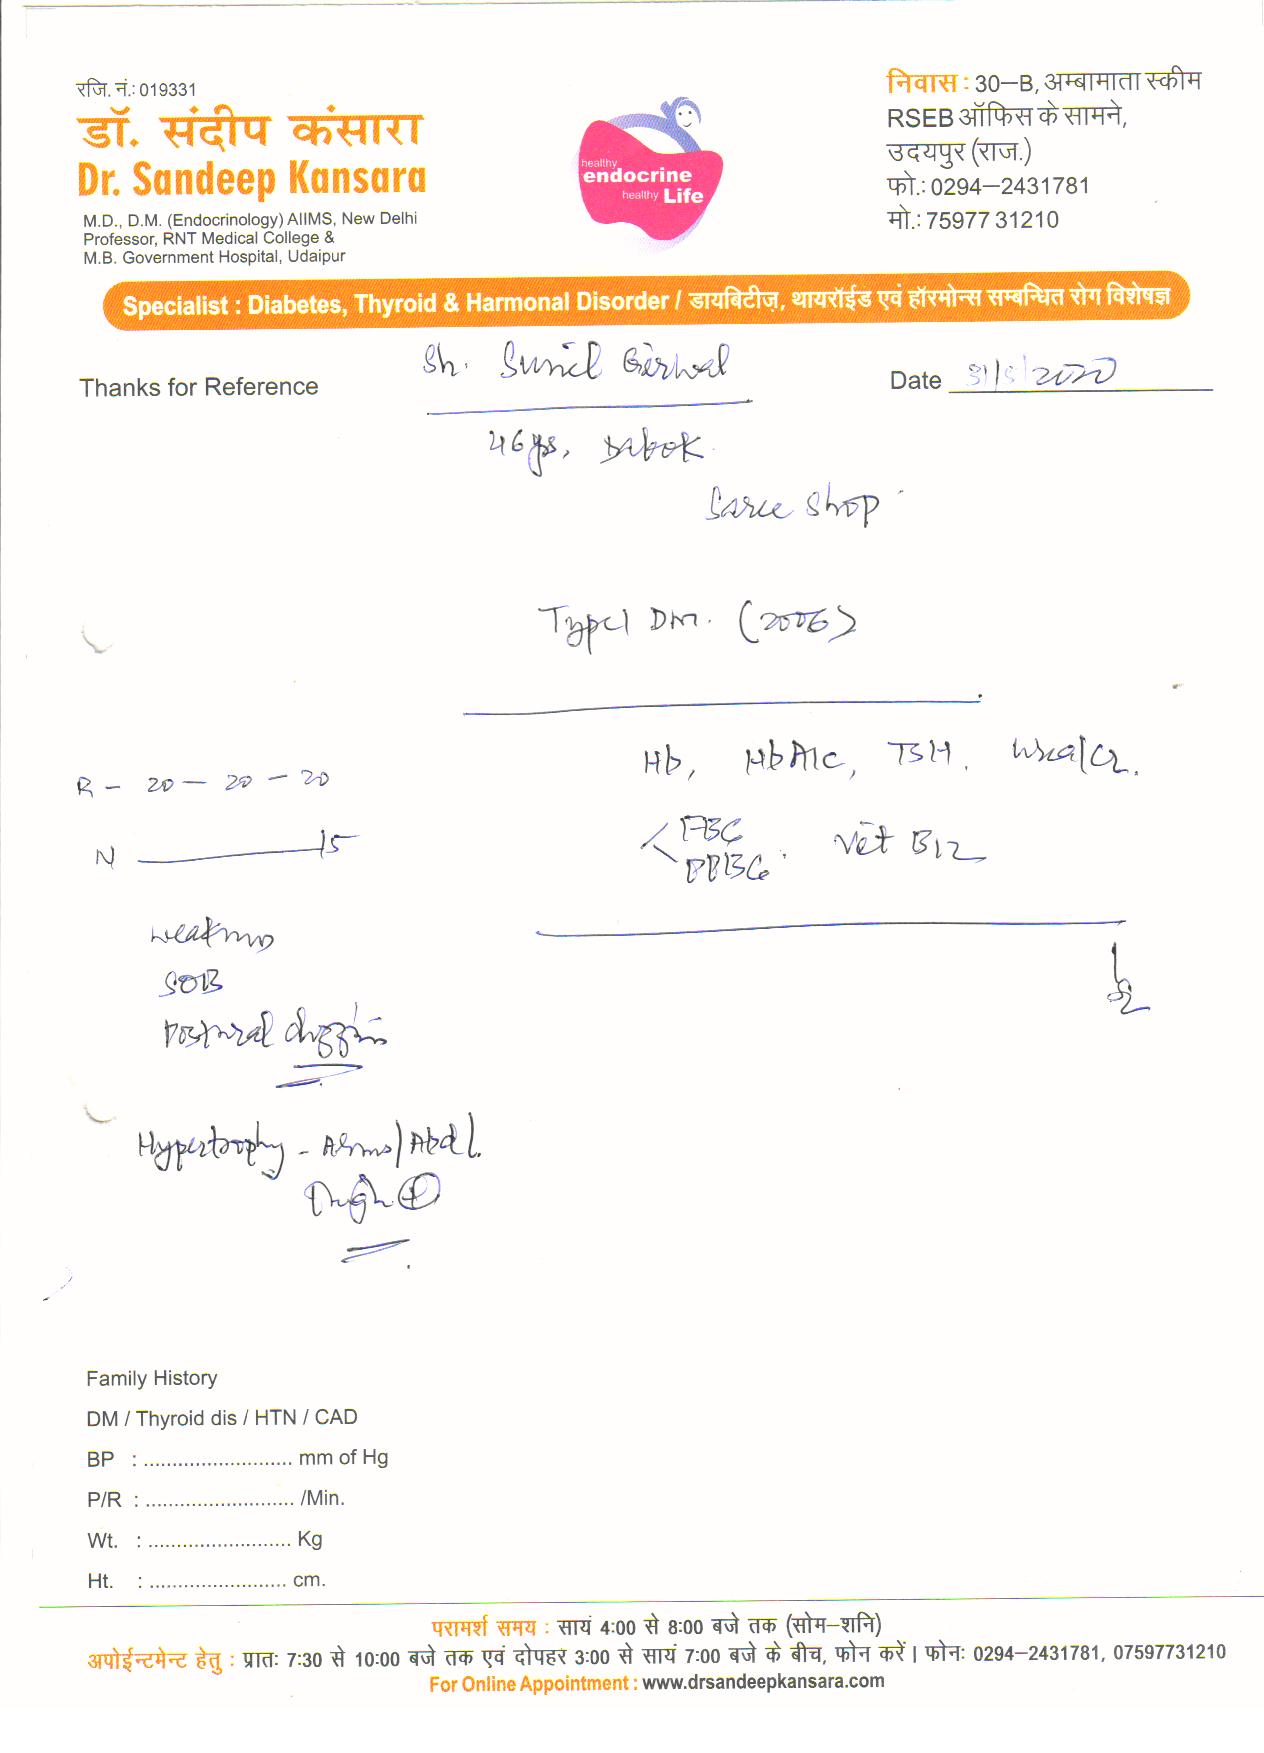 रजि. नं.: 019331
डॉ. संदीप कंसारा
Dr. Sandeep Kansara
M.D., D.M. (Endocrinology) AIIMS, New Delhi
Professor, RNT Medical College &
M.B. Government Hospital, Udaipur
healthy
endocrine
healthy Life
निवास : 30–B, अम्बामाता स्कीम
RSEB ऑफिस के सामने,
उदयपुर (राज.)
फो.: 0294–2431781
मो.: 75977 31210
Specialist : Diabetes, Thyroid & Harmonal Disorder / डायबिटीज़, थायरॉईड एवं हॉरमोन्स सम्बन्धित रोग विशेषज्ञ
Thanks for Reference
Sh. Sunil
Date 31/5/2020
46 yrs, Dabok
Saree Shop
Type 1 DM. (2006)
Hb, HbA1c, TSH. Urea/Cr.
R - 20 - 20 - 20
FBG
PPBG. Vit B12
N 15
weakness
SOB
Postural dizziness
Hypertrophy - Arms/Abd.
Thigh ⊕
Family History
DM / Thyroid dis / HTN / CAD
BP : .......................... mm of Hg
P/R : .......................... /Min.
Wt. : ......................... Kg
Ht. : ........................ cm.
परामर्श समय : सायं 4:00 से 8:00 बजे तक (सोम–शनि)
अपोईन्टमेन्ट हेतु : प्रातः 7:30 से 10:00 बजे तक एवं दोपहर 3:00 से सायं 7:00 बजे के बीच, फोन करें। फोनः 0294–2431781, 07597731210
For Online Appointment : www.drsandeepkansara.com